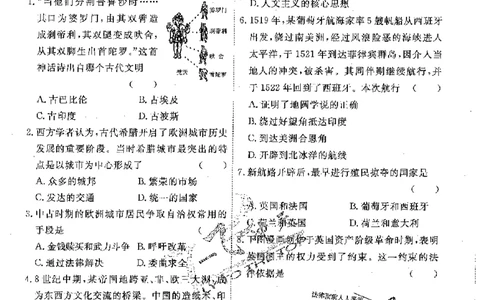 1.“当他们分割普鲁沙时……
其口为婆罗门，由其双臂造
成刹帝利，其双腿变成吠舍，
从其双脚生出首陀罗。”这首
神话诗出自哪个古代文明
（　　）
婆罗门
刹帝利
吠舍
首陀罗
梵天
A. 古巴比伦　B. 古埃及
C. 古印度　D. 古波斯
2. 西方学者认为，古代希腊开启了欧洲城市历史
发展的重要阶段。当时希腊城市最突出的特
点是以城市为中心形成了（　　）
A. 众多的城邦　B. 繁荣的市场
C. 发达的交通　D. 统一的国家
3. 中古时期的欧洲城市居民争取自治权常用的
手段是（　　）
A. 金钱赎买和武力斗争　B. 呼吁改革
C. 通过法律解决　D. 委曲求全
4. 8世纪中期，某帝国地跨亚、非、欧三大洲，成
为东西方文化交流的桥梁。中国的造纸术、印
D. 人文主义的核心思想
6. 1519年，某葡萄牙航海家率5艘帆船从西班牙
出发，绕过南美洲，经过风浪险恶的海峡进入
太平洋，于1521年到达菲律宾群岛，因介入当
地人的冲突，被杀害。其同伴期继续航行，并
于1522年回到了西班牙。本次航行（　　）
A. 证明了地圆学说的正确
B. 绕过好望角抵达印度
C. 到达美洲合恩角
D. 开辟到北冰洋的航线
7. 新航路开辟后，最早进行殖民掠夺的国家是
（　　）
A. 英国和法国　B. 葡萄牙和西班牙
C. 荷兰和英国　D. 荷兰和意大利
8. 下图漫画创作于英国资产阶级革命时期，表明
英国国王的权力受到了约束。这一约束的法
律依据是（　　）